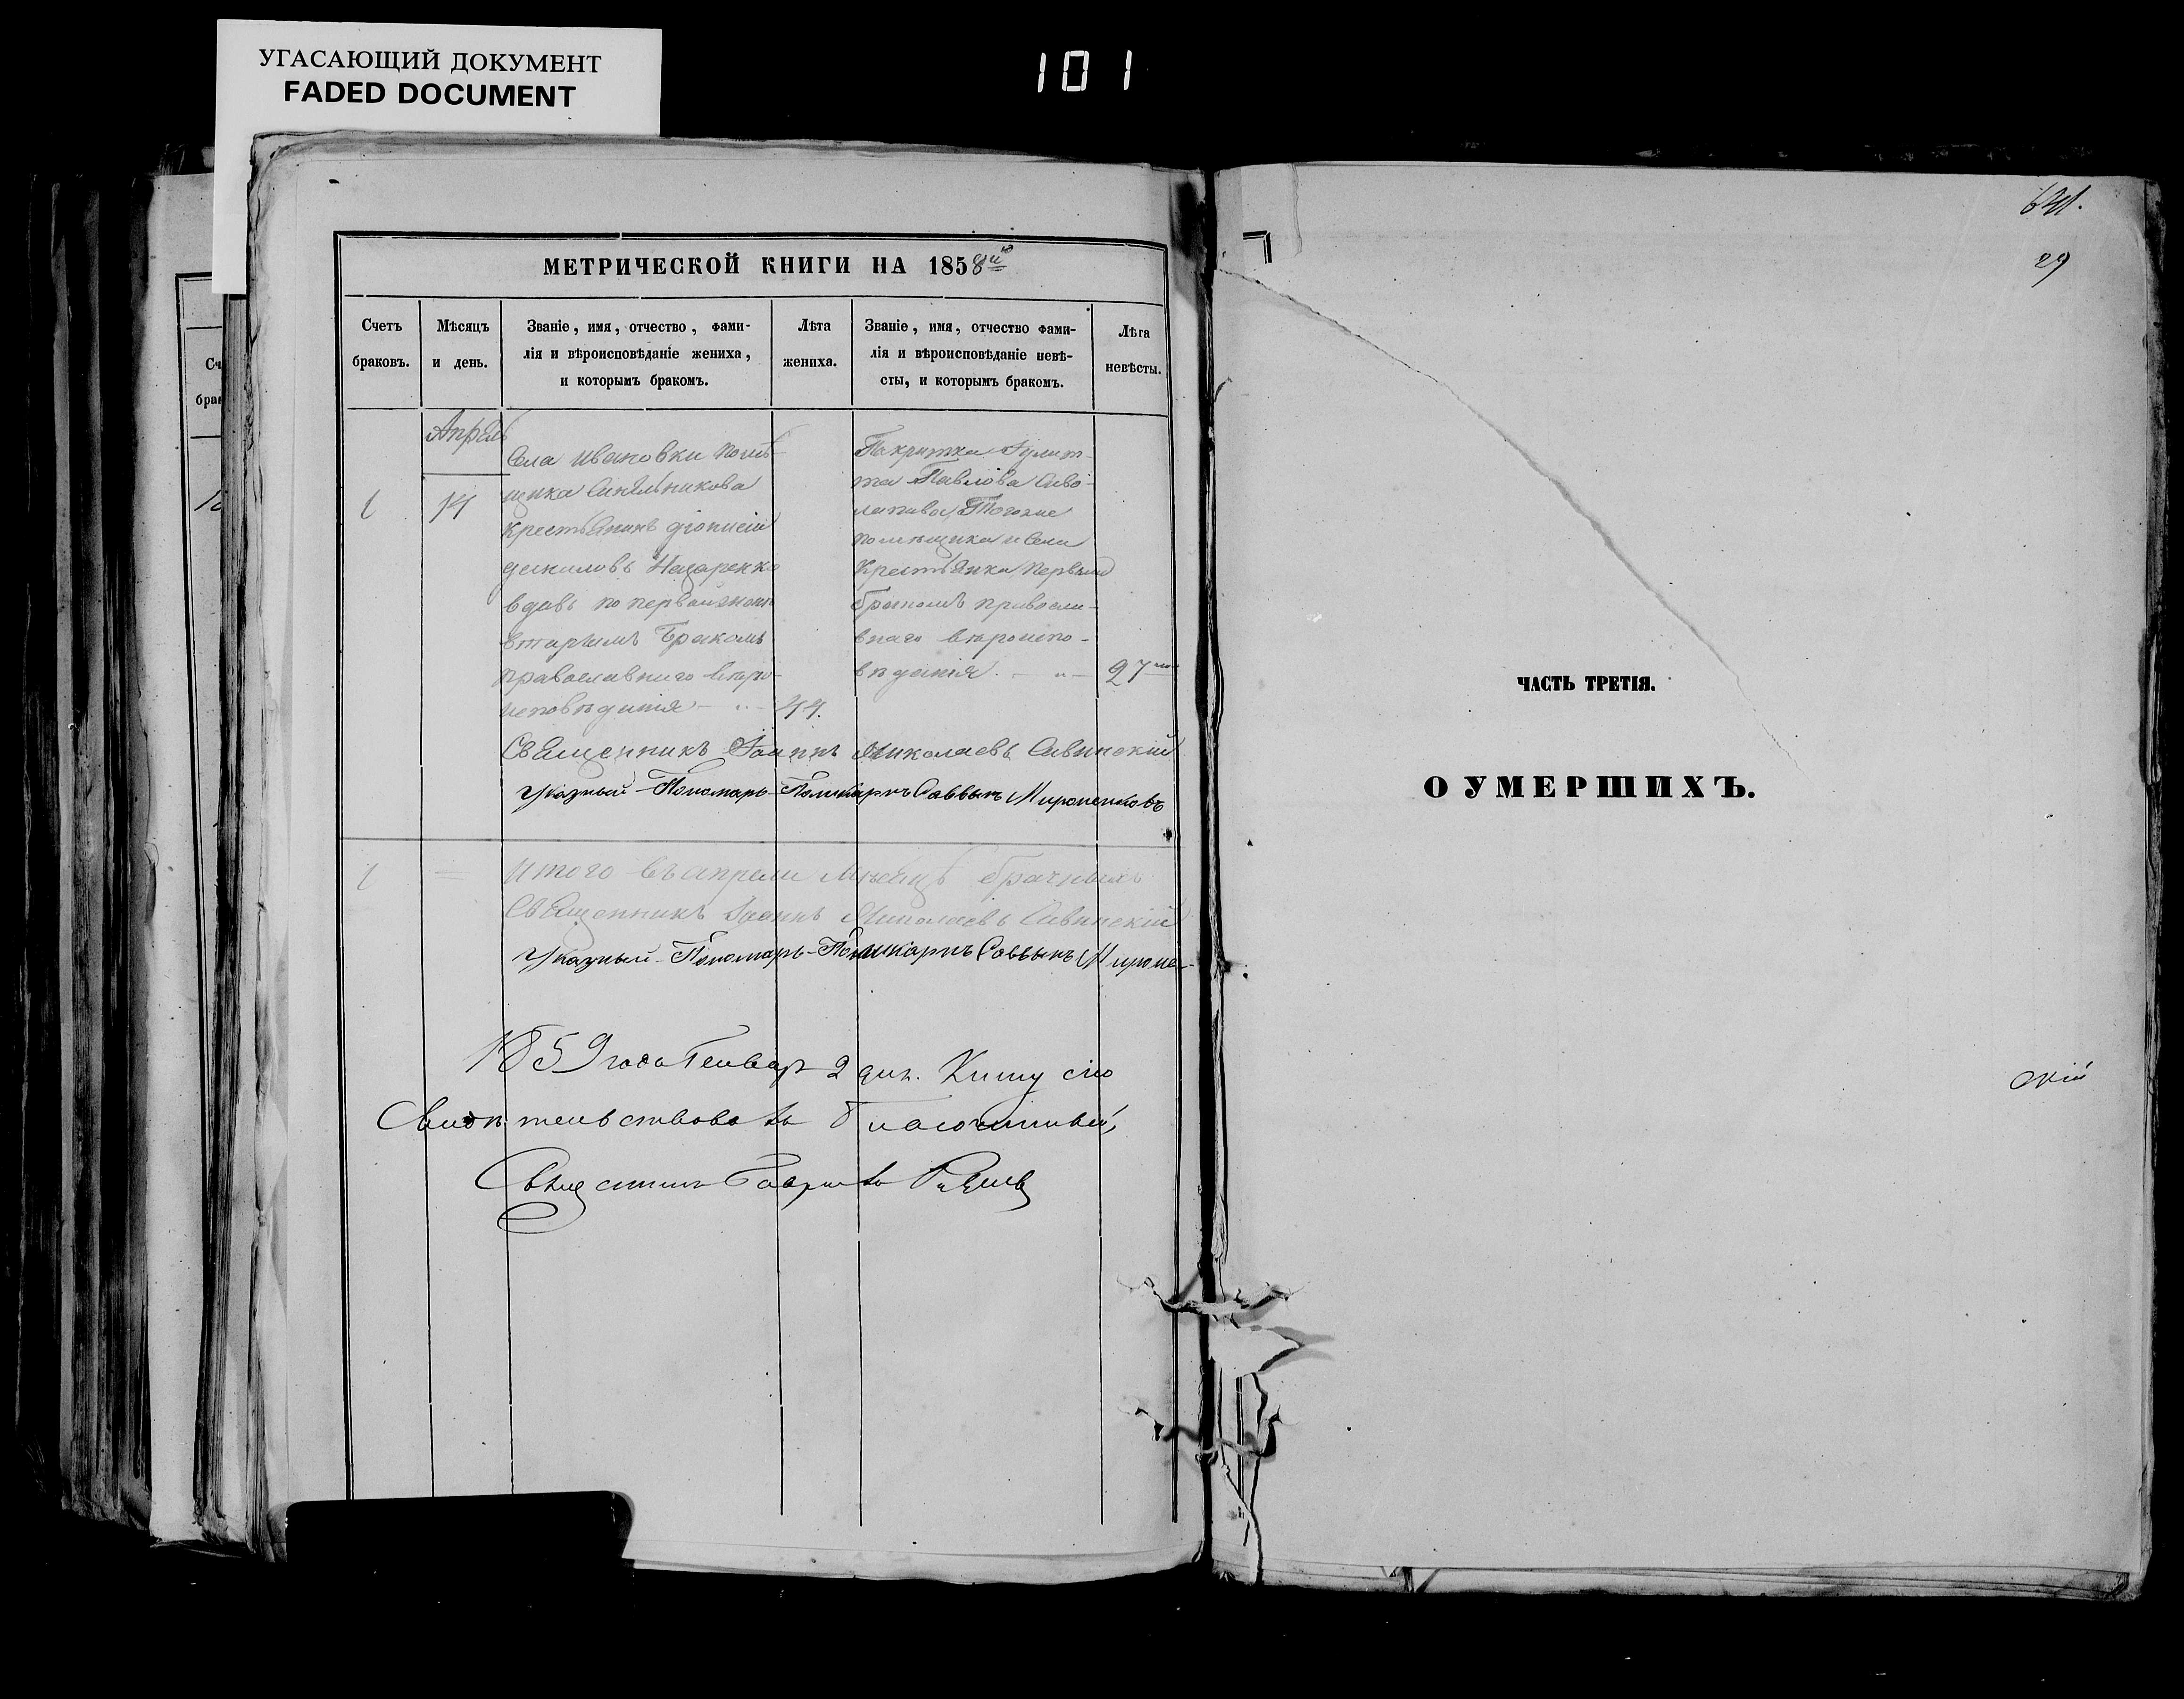 УГАСАЮЩИЙ ДОКУМЕНТ
FADED DOCUMENT
101
МЕТРИЧЕСКОЙ КНИГИ НА 1858й
Счетъ браковъ.
Мѣсяцъ и день.
Званіе, имя, отчество, фами-
лія и вѣроисповѣданіе жениха,
и которымъ бракомъ.
Лѣта жениха.
Званіе, имя, отчество фами-
лія и вѣроисповѣданіе невѣ-
сты, и которымъ бракомъ.
Лѣта невѣсты.
Апрель
1
14
Села Ивановки помѣ-
щика Синельникова
крестьянинъ Діонисій
Назаренко
вдовъ по первой женѣ
вторымъ бракомъ
православнаго вѣро-
исповѣданія
44.
Павлова
Тогоже
помѣщика и села
крестьянка первымъ
бракомъ правосла-
внаго вѣроиспо-
вѣданія
27
Священникъ Іоаннъ Николаевъ Савинскій
Указный Пономарь Поликарпъ Саввынъ Мироненковъ
1
Итого въ апрели мѣсяцѣ брачныхъ
Священникъ Іоаннъ Николаевъ Савинскій
Указный Пономарь Поликарпъ Саввынъ Мироне-
1859 года Генвар 2 дня. Книгу сію
Свидѣтельствовалъ Благочинный,
Священникъ Гавриилъ
29
ЧАСТЬ ТРЕТІЯ.
О УМЕРШИХЪ.
скій